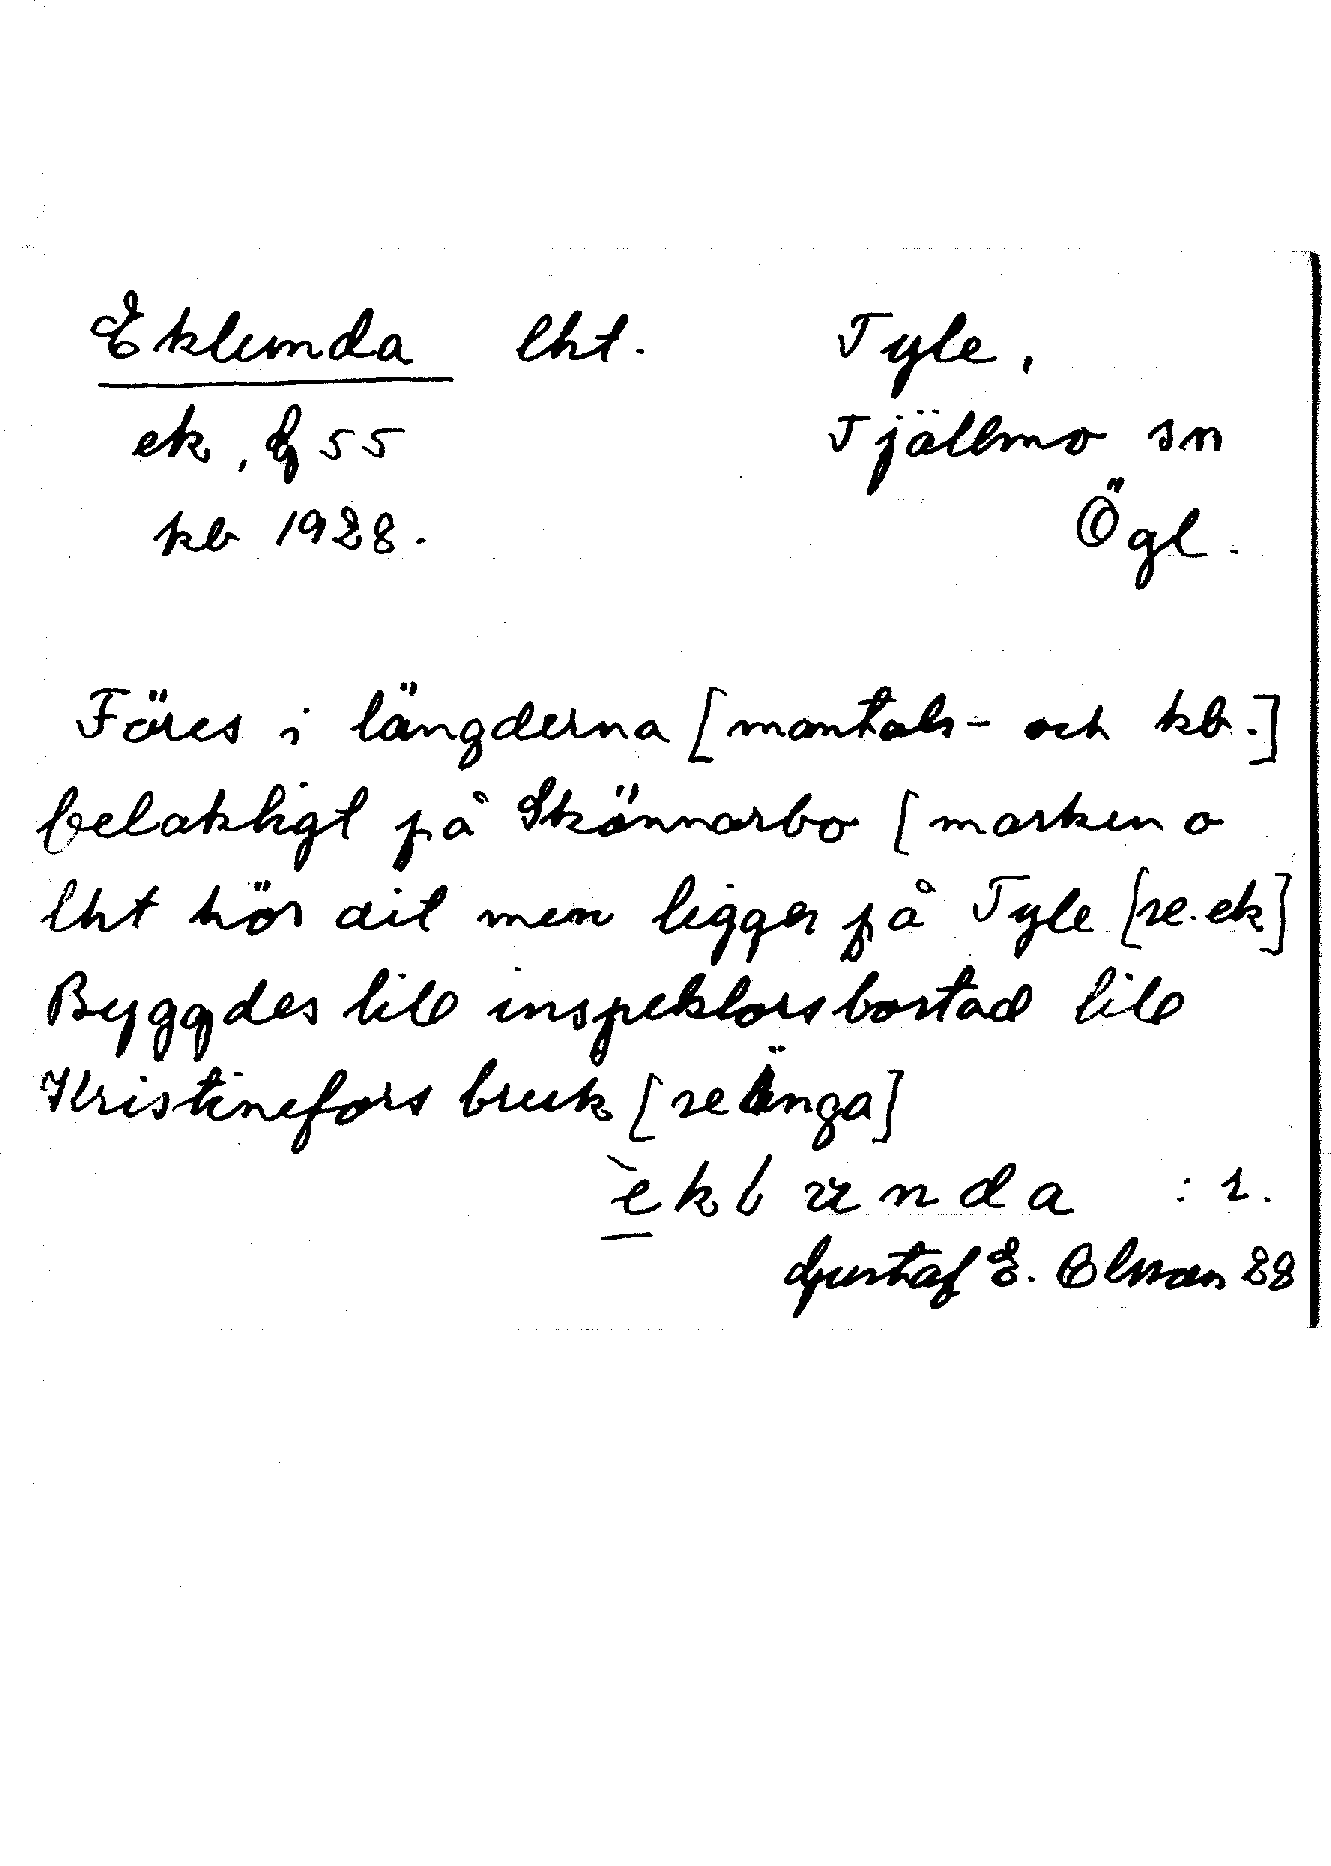 Eklunda lht. Tyle,
ek, bl 55 Tjällmo sn
kb 1928. Ögl.
Föres i längderna [mantals- och kb.]
felaktigt på Skönnarbo [marken o
lht hör dit men ligger på Tyle [se. ek]
Byggdes till inspektorsbostad till
Kristinefors bruk [se änga]
èklunda : 1.
Gustaf E. Olsson 28